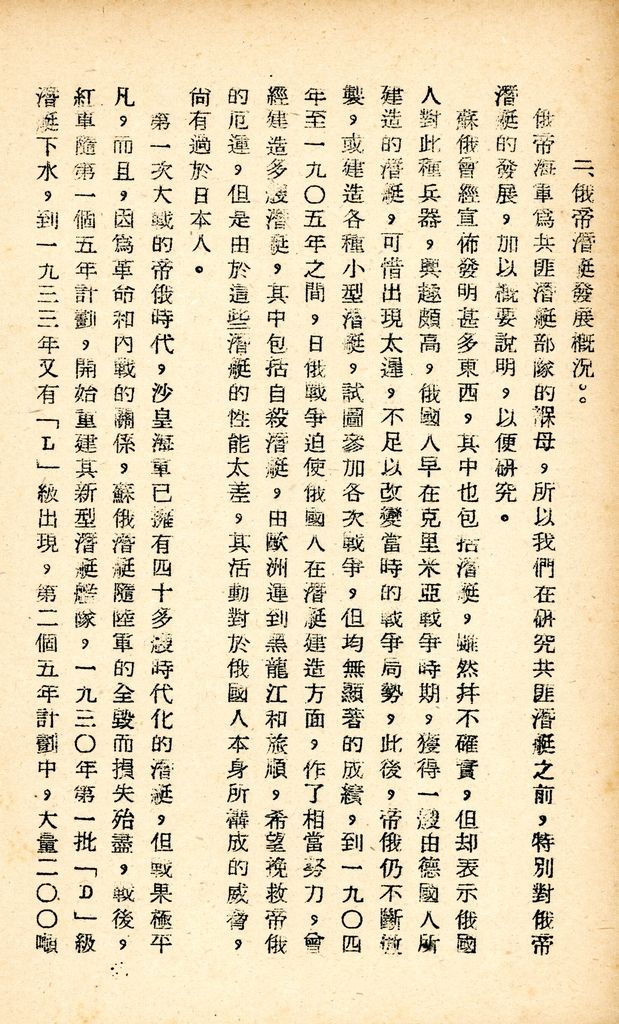 二、俄帝潛艇發展概況。
俄帝海軍為共匪潛艇部隊的褓母，所以我們在研究共匪潛艇之前，特別對俄帝
潛艇的發展，加以概要說明，以便研究。
蘇俄曾經宣佈發明甚多東西，其中也包括潛艇，雖然并不確實，但却表示俄國
人對此種兵器，興趣頗高，俄國人早在克里米亞戰爭時期，獲得一艘由德國人所
建造的潛艇，可惜出現太遲，不足以改變當時的戰爭局勢，此後，帝俄仍不斷倣
製，或建造各種小型潛艇，試圖參加各次戰爭，但均無顯著的成績，到一九〇四
年至一九〇五年之間，日俄戰爭迫使俄國人在潛艇建造方面，作了相當努力，曾
經建造多艘潛艇，其中包括自殺潛艇，由歐洲運到黑龍江和旅順，希望挽救帝俄
的厄運，但是由於這些潛艇的性能太差，其活動對於俄國人本身所構成的威脅，
尚有過於日本人。
第一次大戰的帝俄時代，沙皇海軍已擁有四十多艘時代化的潛艇，但戰果極平
凡，而且，因為革命和內戰的關係，蘇俄潛艇隨陸軍的全毀而損失殆盡，戰後，
紅軍隨第一個五年計劃，開始重建其新型潛艇艦隊，一九三〇年第一批「D」級
潛艇下水，到一九三三年又有「L」級出現，第二個五年計劃中，大量二〇〇噸